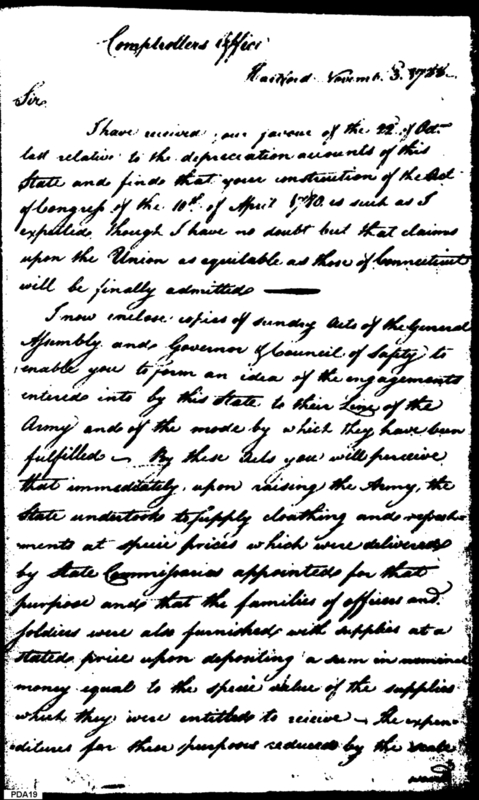 Comptrollers Office
Hartford Novemb. 3. 1788
Sir
I have received your favour of the 22d of Oct-
last relative to the depreciation accounts of this
State and find that your construction of the Act
of Congress of the 10th. of April 1780 is such as I
expected, though I have no doubt but that claims
upon the Union as equitable as those of Connecticut
will be finally admitted —
I now enclose copies of sundry Acts of the General
Assembly and Governor & Council of Safety to
enable you to form an idea of the engagements
entered into by this State to their Line of the
Army and of the mode by which they have been
fulfilled — By these Acts you will perceive
that immediately upon raising the Army, the
State undertook to supply cloathing and refresh-
ments at specie prices which were delivered
by State Commissaries appointed for that
purpose and that the families of officers and
soldiers were also furnished with supplies at a
stated price upon depositing a sum in nominal
money equal to the specie value of the supplies
which they were entitled to receive — The expen-
ditures for these purposes reduced by the scale
PDA19